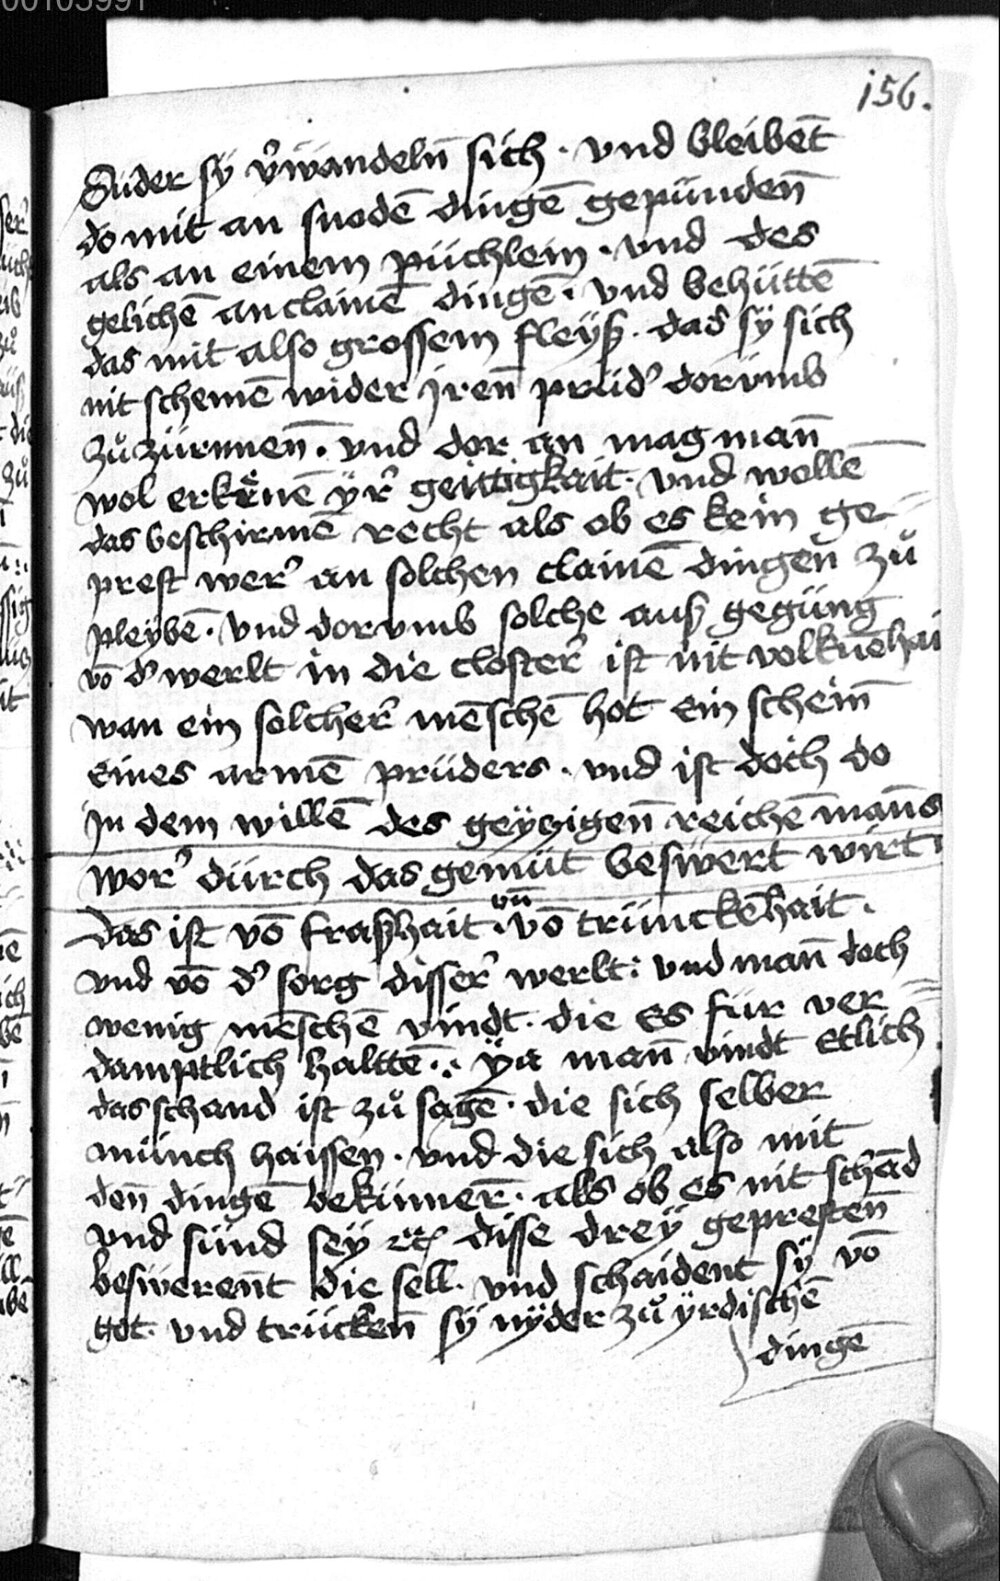 00103991
156.
Sunder sÿ v̉wandeln̄ sich · vnd bleibēt
do mit an snodē dingē gepundenn̄
als an einem püchlein · vnd des
gelichē an clainē dingē · vnd behüttē
das mit also grossem fleÿß · das sÿ sich
nit schemē wider jrenn̄ prüd̉ dorumb
zů zürnnen̄ · vnd dor an mag man̄
wol erkēnē ÿr̉ geittigkait · vnd wollē
das beschirmē recht als ob es kein ge-
prest wer̉ an solchen clainē dingen zů
pleÿbē · vnd dorvmb solche auß gegung
vō d̉ werlt in die closter̉ ist nit volkūēhai
wan ein solcher̉ mēschē hot ein schein̄
eines armē prüders · vnd ist doch do
jn dem willē des geÿczigen̄ reichē man̄s
wor̉ dürch das gemüt beswert wirt
das ist vō fraßhait · vn̄ vō trünckēhait ·
vnd vō d̉ sorg disser̉ werlt : vnd man̄ doch
wenig mēschē vindt · die es für ver-
damptlich haltē : ÿa man̄ vindt etlich
das schand ist zů sagē · die sich selber
münch haissen · vnd die sich also mit
den̄ dingē bekümer̄ · als ob es nit schād
vnd sünd seÿ etc̄ disse dreÿ geprestēn
beswerent̄ die sell · vnd schaident sÿ vō
got · vnd trücken̄ sÿ nÿder zů ÿrdischē
dingē